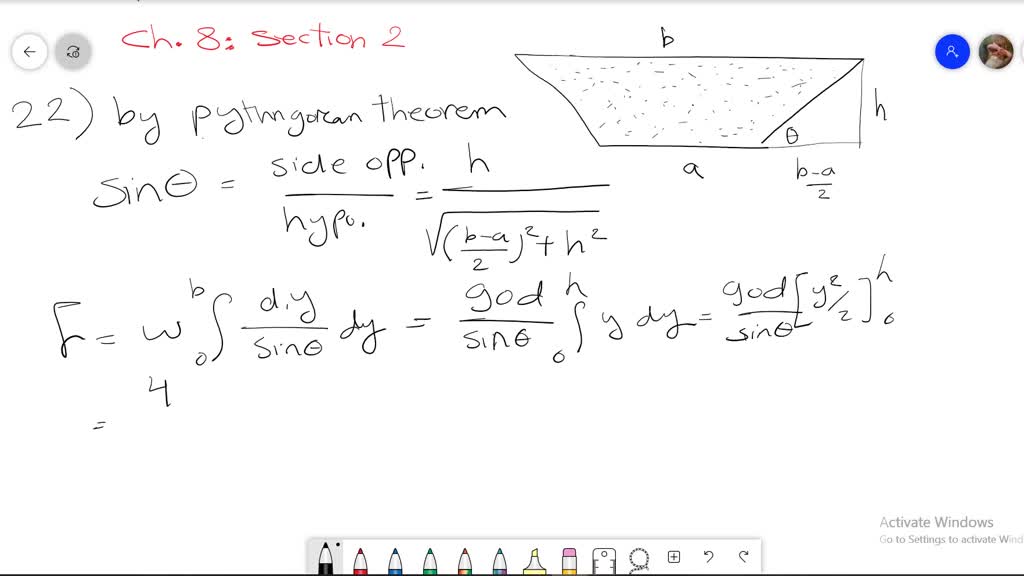 Ch. 8: Section 2
b
h
θ
a
b-a/2
22) by pythngorean theorem
sinθ = side opp./hypo. = h/√((b-a/2)²+h²)
= w ∫₀ᵇ d.y/sinθ dy = god/sinθ ∫₀ʰ y dy = god/sinθ [y²/2]₀ʰ
4
=
Activate Windows
Go to Settings to activate Wind